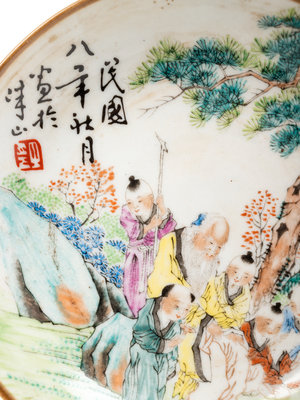 民國
八年秋月
畫於
珠山